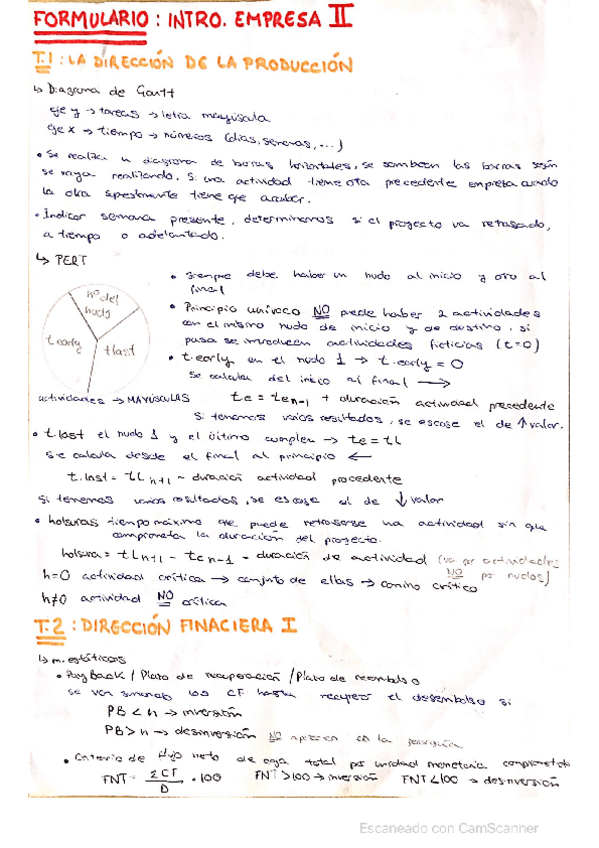 FORMULARIO: INTRO. EMPRESA II
T.1: LA DIRECCIÓN DE LA PRODUCCIÓN
↳ Diagrama de Gantt
eje y → tareas → letra mayúscula
eje x → tiempo → números (días, semanas, ...)
• Se realiza un diagrama de barras horizontales, se sombrean las barras según
se vaya realizando. Si una actividad tiene otra precedente empieza cuando
la otra supestamente tiene que acabar.
• Indicar semana presente, determinamos si el proyecto va retrasado,
a tiempo o adelantado.
↳ PERT
nº del
nudo
t.early
t last
• Siempre debe haber un nudo al inicio y otro al
final
• Principio unívoco NO puede haber 2 actividades
con el mismo nudo de inicio y de destino. si
pasa se introducen actividades ficticias (t=0)
• t.early en el nudo 1 → t.early = 0
se calcula del inicio al final →
actividades → MAYÚSCULAS
te = te n-1 + duración actividad precedente
Si tenemos varios resultados, se escoge el de ↑ valor.
• t.last el nudo 1 y el último cumplen → te = tL
se calcula desde el final al principio ←
t.last = tL n+1 - duración actividad precedente
si tenemos varios resultados, se escoge el de ↓ valor
• holguras tiempo máximo que puede retrasarse una actividad sin que
comprometa la duración del proyecto.
holgura = tL n+1 - te n-1 - duración de actividad (va por actividades
NO por nudos)
h=0 actividad crítica → conjunto de ellas → camino crítico
h≠0 actividad NO crítica
T.2: DIRECCIÓN FINACIERA I
↳ m. estáticos
• PayBack / Plazo de recuperación / Plazo de reembolso
se van sumando los CF hasta recuperar el desembolso si
PB < n → inversión
PB > n → desinversión NO aparece en la
• Criterio de flujo neto de caja total por unidad monetaria comprometida
FNT = ΣCF / D · 100 FNT > 100 → inversión FNT < 100 → desinversión
Escaneado con CamScanner